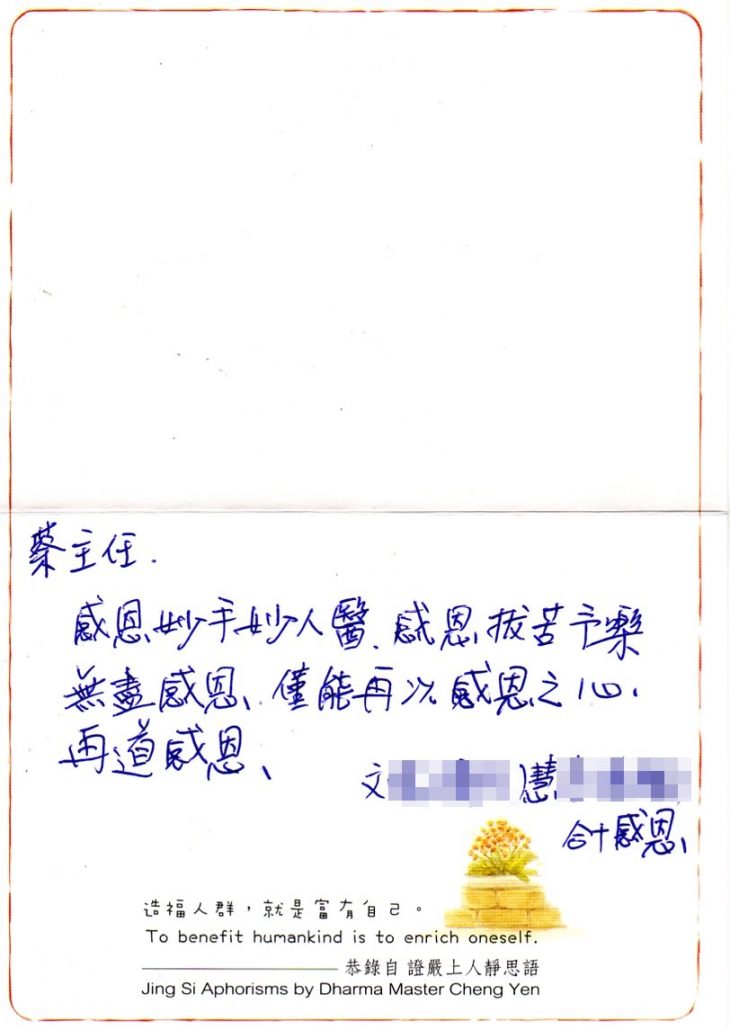 蔡主任.
感恩妙手妙人醫、感恩拔苦予樂
無盡感恩、僅能再次感恩之心、
再道感恩、
文 慧
合十感恩、
造福人群，就是富有自己。
To benefit humankind is to enrich oneself.
恭錄自 證嚴上人靜思語
Jing Si Aphorisms by Dharma Master Cheng Yen